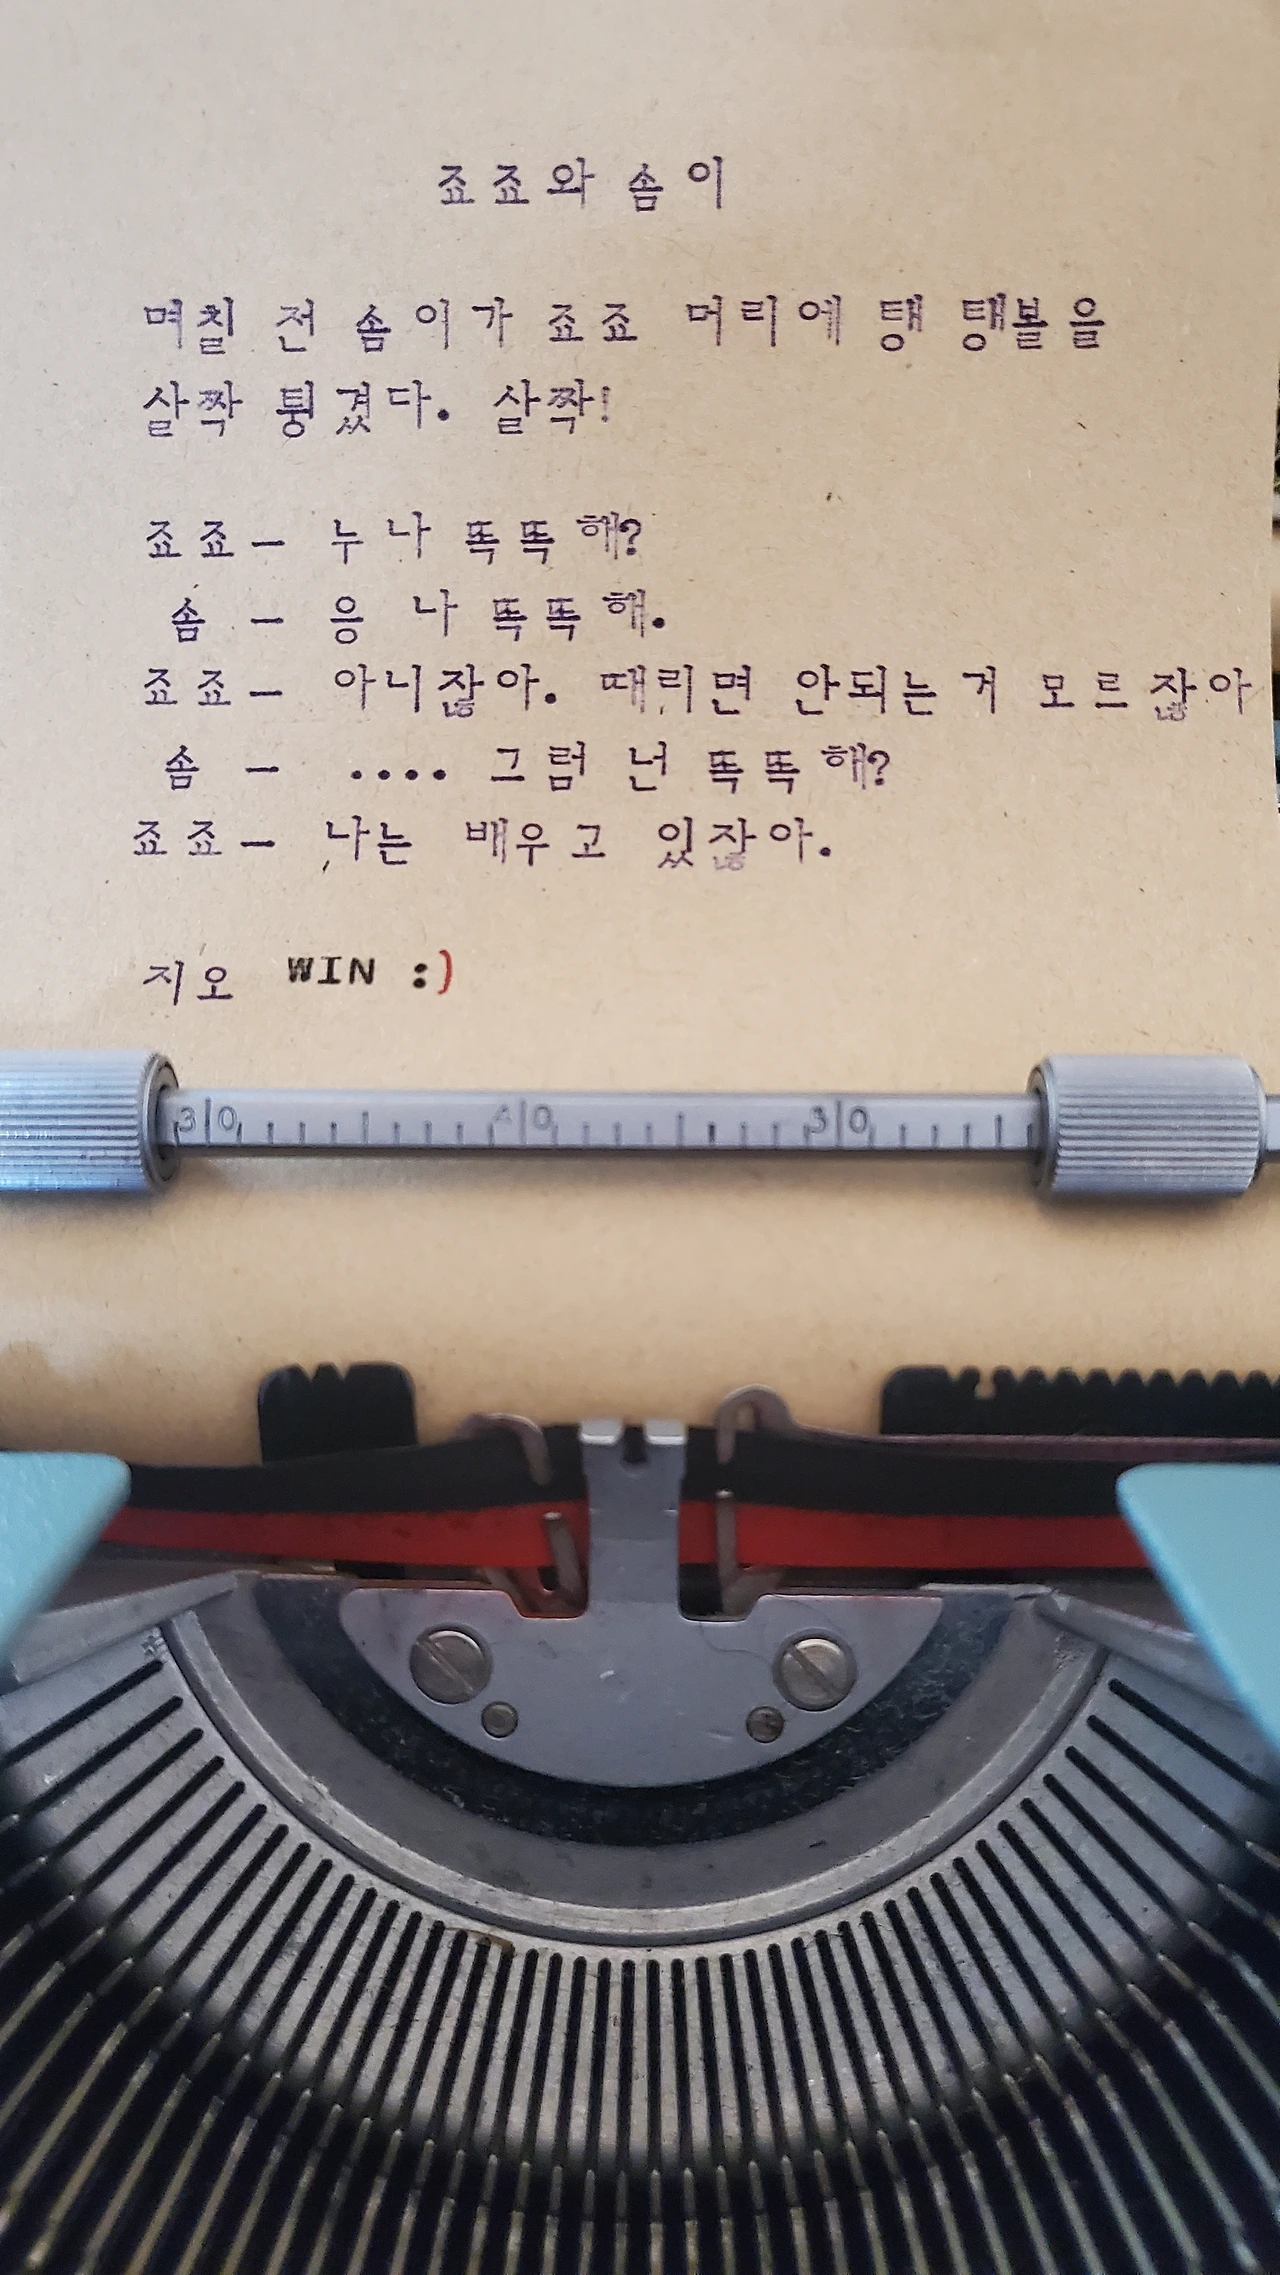 죠죠와 솜이
며칠 전 솜이가 죠죠 머리에 탱 탱볼을
살짝 튕겼다. 살짝!
죠죠- 누나 똑똑해?
솜 - 응 나 똑똑해.
죠죠- 아니잖아. 때리면 안되는거 모르잖아
솜 - .... 그럼 넌 똑똑해?
죠죠- 나는 배우고 있잖아.
지오 WIN :)
30 40 30